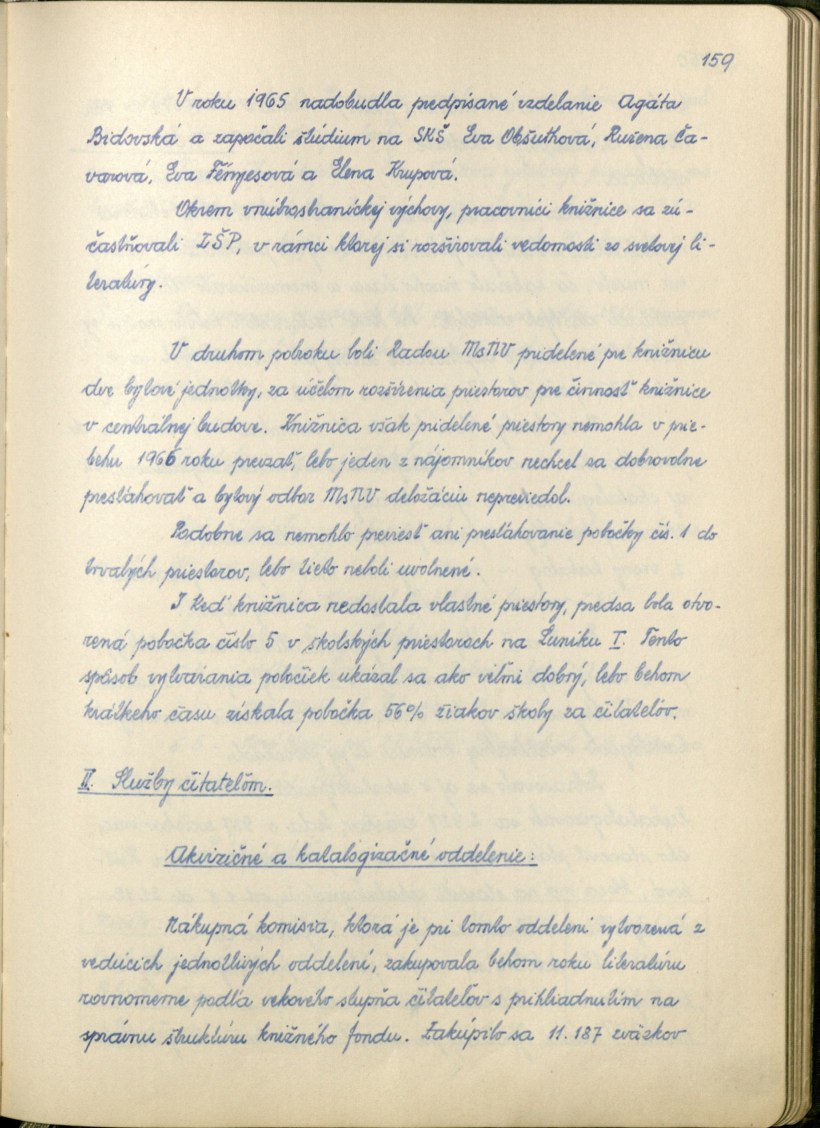 159
V roku 1965 nadobudla predpísané vzdelanie Agáta
Bidovská a započali štúdium na SKŠ Eva Obšutková, Ružena Ča-
varová, Eva Fényesová a Elena Krupová.
Okrem vnútrostraníckej výchovy, pracovníci knižnice sa zú-
častňovali ZŠP, v rámci ktorej si rozširovali vedomosti zo svetovej li-
teratúry.
V druhom polroku boli Radou MsNV pridelené pre knižnicu
dve bytové jednotky, za účelom rozšírenia priestorov pre činnosť knižnice
v centrálnej budove. Knižnica však pridelené priestory nemohla v prie-
behu 1966 roku prevzať, lebo jeden z nájomníkov nechcel sa dobrovolne
presťahovať a bytový odbor MsNV deložáciu nepreviedol.
Podobne sa nemohlo previesť ani presťahovanie pobočky čís. 1 do
trvalých priestorov, lebo tieto neboli uvolnené.
I keď knižnica nedostala vlastné priestory, predsa bola otvo-
rená pobočka číslo 5 v školských priestoroch na Luniku I. Tento
spôsob vytvárania pobočiek ukázal sa ako veľmi dobrý, lebo behom
krátkeho času získala pobočka 56% žiakov školy za čitateľov.
II. Služby čitateľom.
Akvizičné a katalogizačné oddelenie:
Nákupná komisia, ktorá je pri tomto oddelení vytvorená z
vedúcich jednotlivých oddelení, zakupovala behom roku literatúru
rovnomerne podľa vekového stupňa čitateľov s prihliadnutím na
správnu štruktúru knižného fondu. Zakúpilo sa 11.187 zväzkov